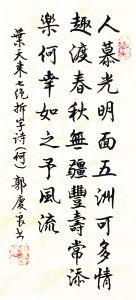 人慕光明面五洲可多情
趣渡春秋無疆豐壽常添
樂何幸如之予風流
葉天東七絕折字诗(何)郭慶